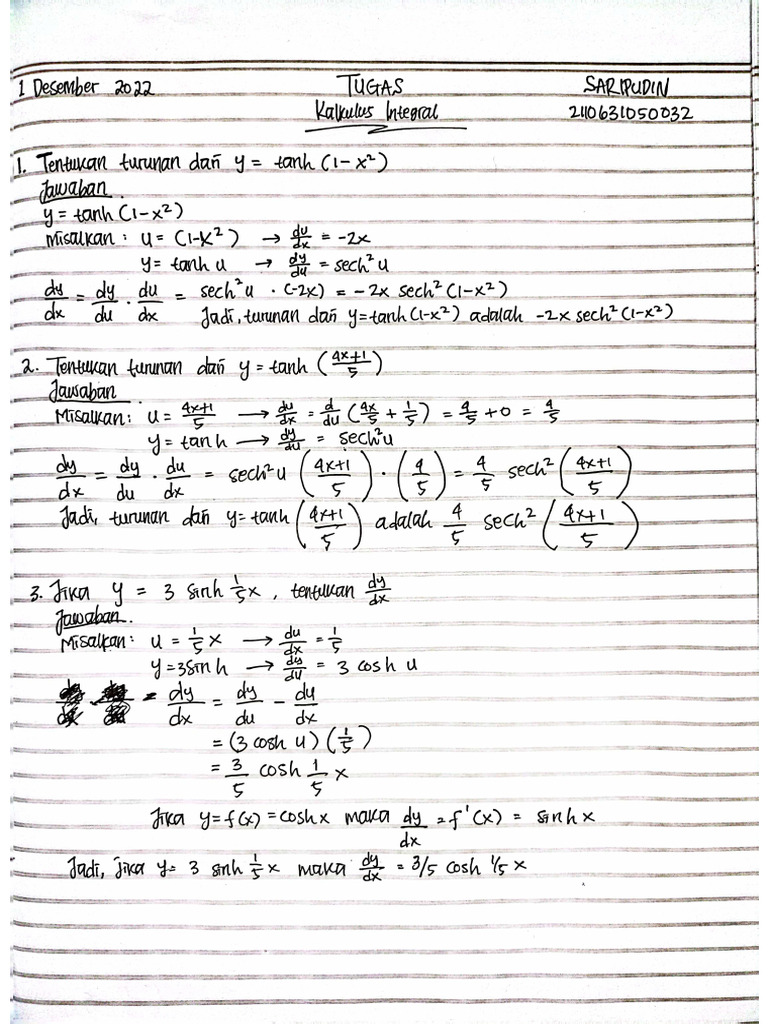 1 Desember 2022 TUGAS SARIPUDIN
Kalkulus Integral 2110631050032
1. Tentukan turunan dari y = tanh (1-x²)
Jawaban.
y = tanh (1-x²)
Misalkan : u = (1-x²) → du/dx = -2x
y = tanh u → dy/du = sech²u
dy/dx = dy/du . du/dx = sech²u . (-2x) = -2x sech² (1-x²)
Jadi, turunan dari y=tanh (1-x²) adalah -2x sech² (1-x²)
2. Tentukan turunan dari y = tanh (4x+1/5)
Jawaban.
Misalkan: u = 4x+1/5 → du/dx = d/du (4x/5 + 1/5) = 4/5 + 0 = 4/5
y = tan h → dy/du = sech²u
dy/dx = dy/du . du/dx = sech²u (4x+1/5) . (4/5) = 4/5 sech² (4x+1/5)
Jadi, turunan dari y=tanh (4x+1/5) adalah 4/5 sech² (4x+1/5)
3. Jika y = 3 sinh 1/5 x, tentukan dy/dx
Jawaban.
Misalkan: u = 1/5 x → du/dx = 1/5
y = 3sin h → dy/du = 3 cosh u
= dy/dx = dy/du - du/dx
= (3 cosh u) (1/5)
= 3/5 cosh 1/5 x
Jika y = f(x) = cosh x maka dy/dx = f'(x) = sinh x
Jadi, jika y= 3 sinh 1/5 x maka dy/dx = 3/5 cosh 1/5 x